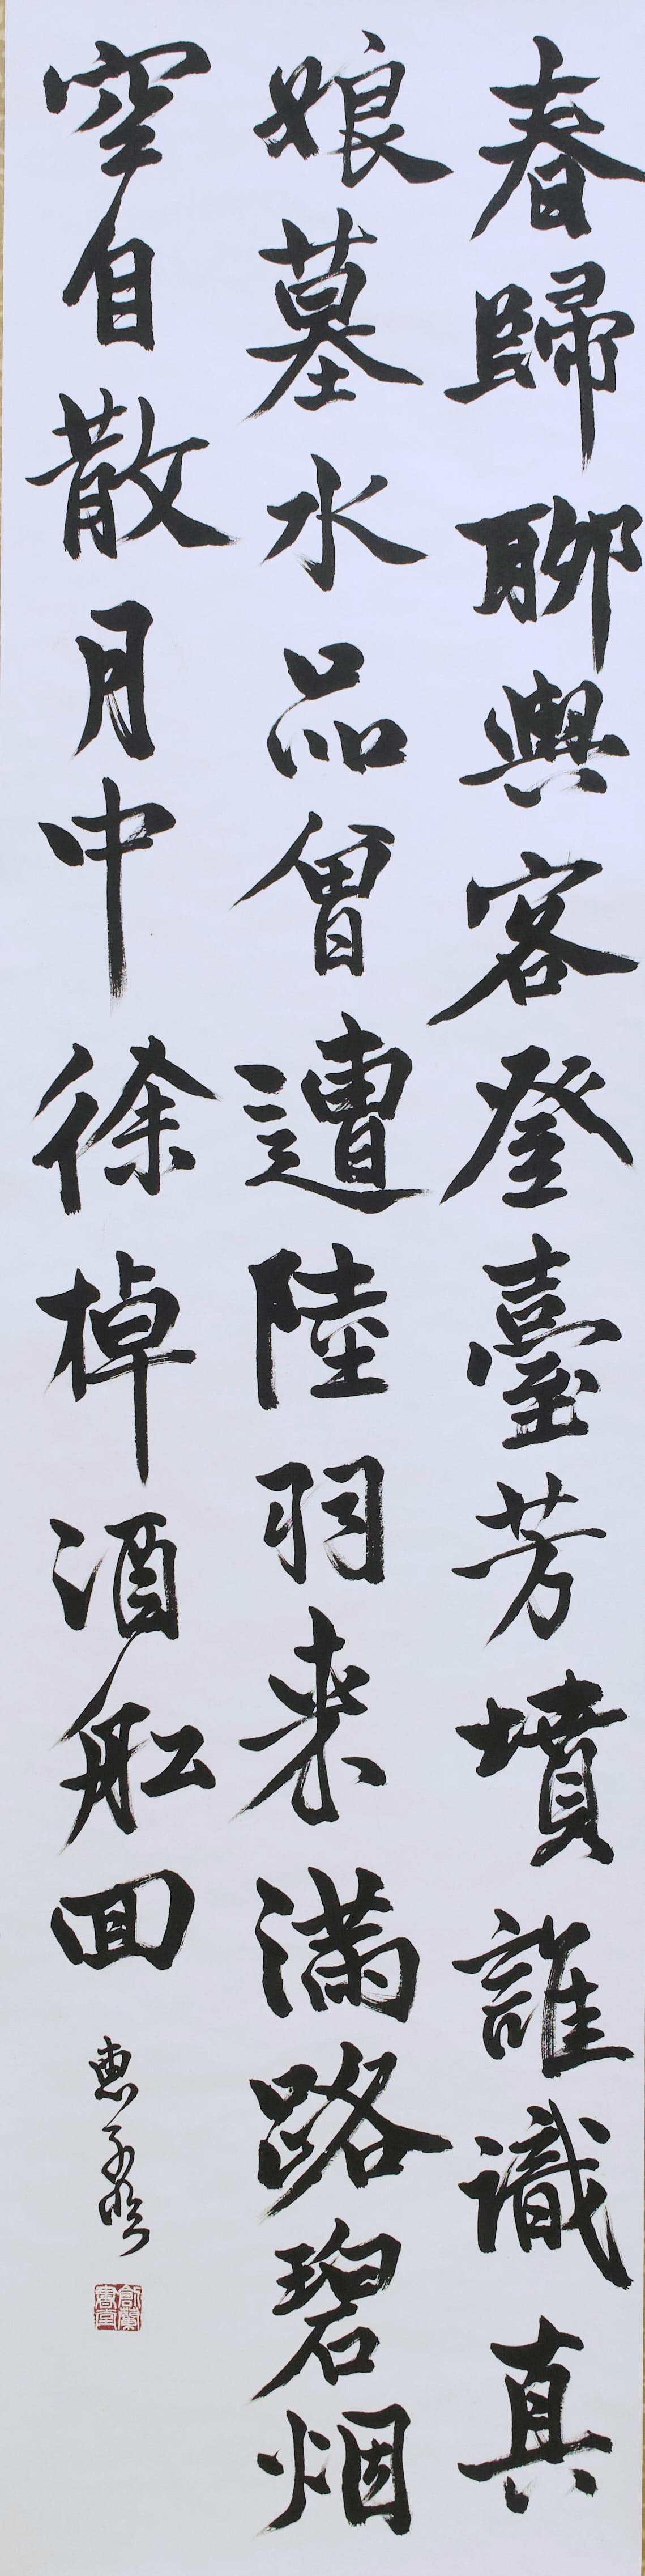 春歸聊與客登臺芳墳誰識真
娘墓水品曾遭陸羽来滿路碧烟
空自散月中徐棹酒舡回
惠子臨